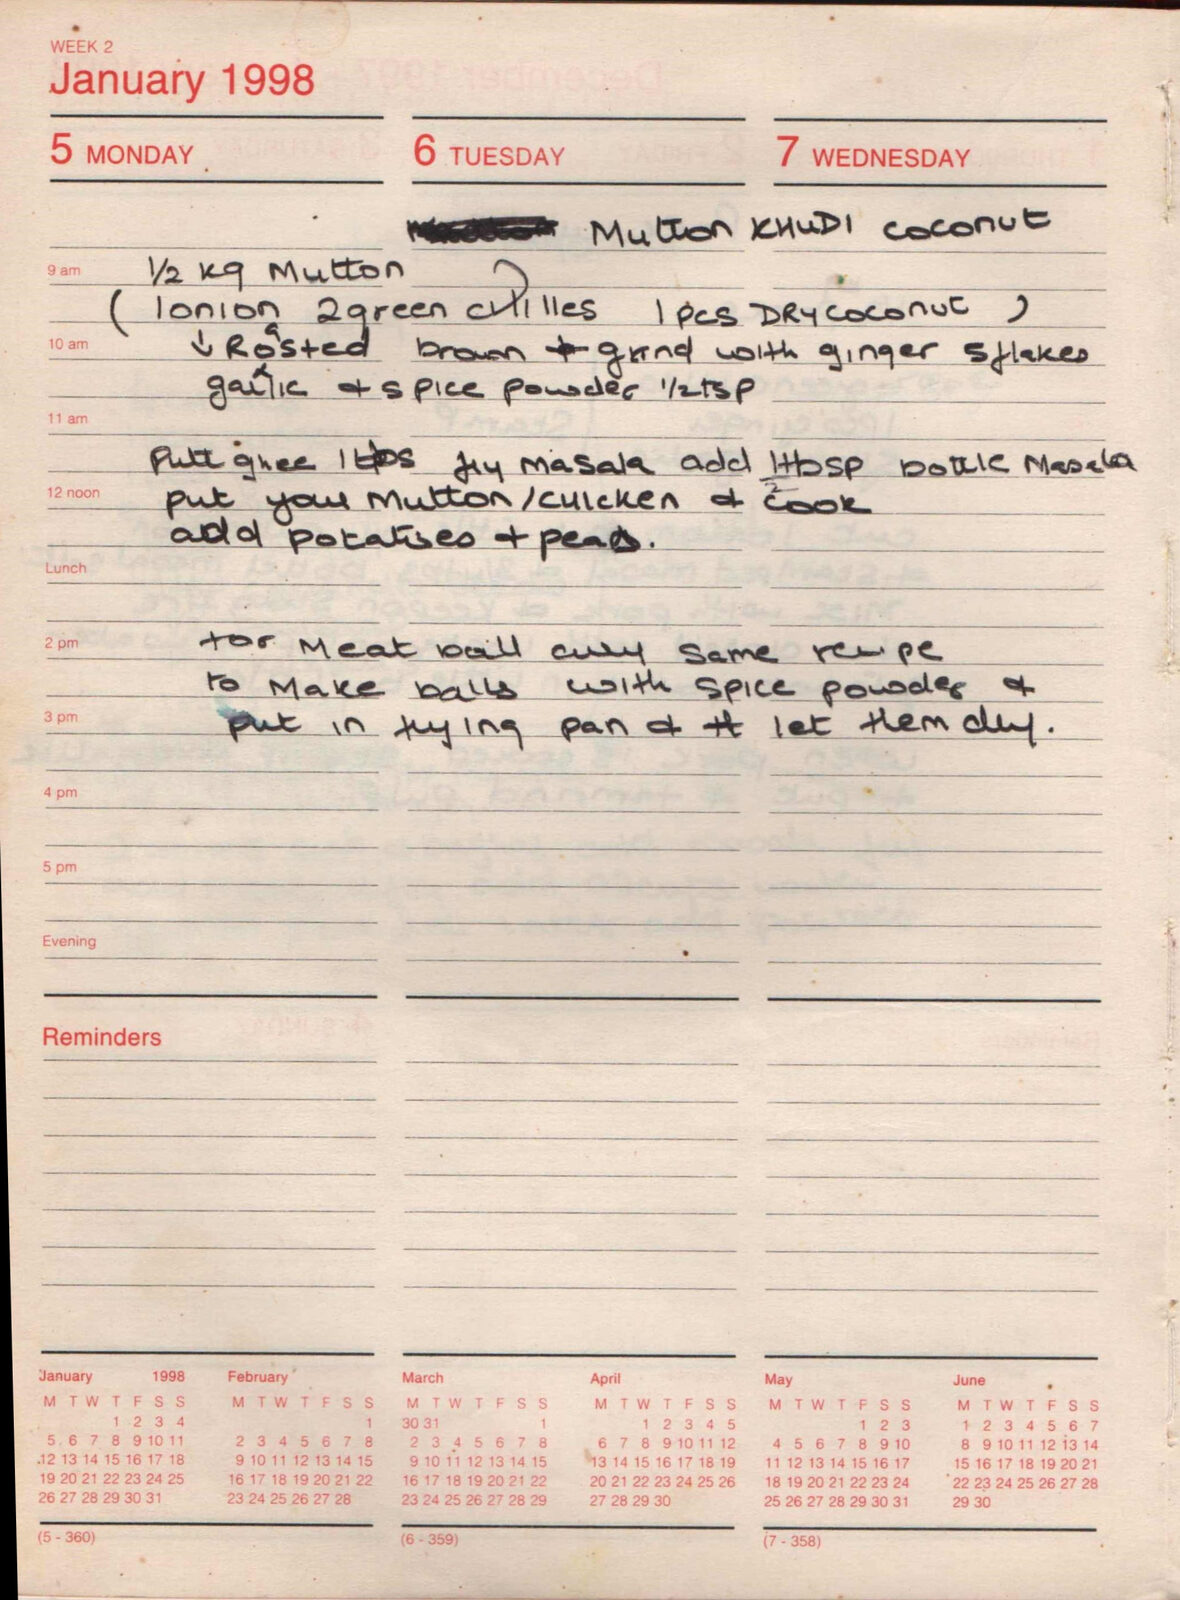 WEEK 2
January 1998
5 MONDAY
6 TUESDAY
7 WEDNESDAY
Mutton KHUDI coconut
9 am
1/2 kg Mutton
( 1onion 2green chilles 1 pcs DRY coconut )
10 am
↓ Roasted brown + grind with ginger 5 flakes
garlic & spice powder 1/2 tsp
11 am
Putt ghee 1 tbs fry Masala add 1 tbsp bottle Masala
12 noon
put your Mutton/CHICKEN & cook
add potatises + peas.
Lunch
2 pm
for Meat ball curry same recipe
to Make balls with spice powder &
3 pm
put in frying pan & let them dry.
4 pm
5 pm
Evening
Reminders
January 1998
M T W T F S S
1 2 3 4
5 6 7 8 9 10 11
12 13 14 15 16 17 18
19 20 21 22 23 24 25
26 27 28 29 30 31
February
M T W T F S S
1
2 3 4 5 6 7 8
9 10 11 12 13 14 15
16 17 18 19 20 21 22
23 24 25 26 27 28
March
M T W T F S S
30 31 1
2 3 4 5 6 7 8
9 10 11 12 13 14 15
16 17 18 19 20 21 22
23 24 25 26 27 28 29
April
M T W T F S S
1 2 3 4 5
6 7 8 9 10 11 12
13 14 15 16 17 18 19
20 21 22 23 24 25 26
27 28 29 30
May
M T W T F S S
1 2 3
4 5 6 7 8 9 10
11 12 13 14 15 16 17
18 19 20 21 22 23 24
25 26 27 28 29 30 31
June
M T W T F S S
1 2 3 4 5 6 7
8 9 10 11 12 13 14
15 16 17 18 19 20 21
22 23 24 25 26 27 28
29 30
(5 - 360)
(6 - 359)
(7 - 358)